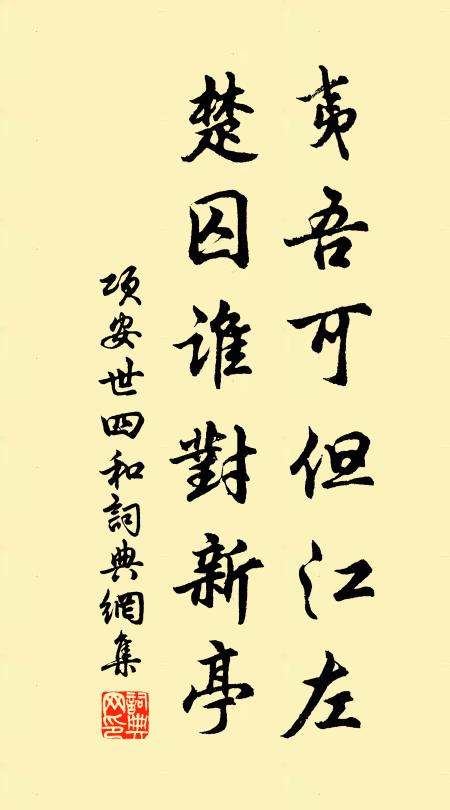 夷吾可但江左
楚囚谁對新亭
项安世四和詞典網集
詞典
网印